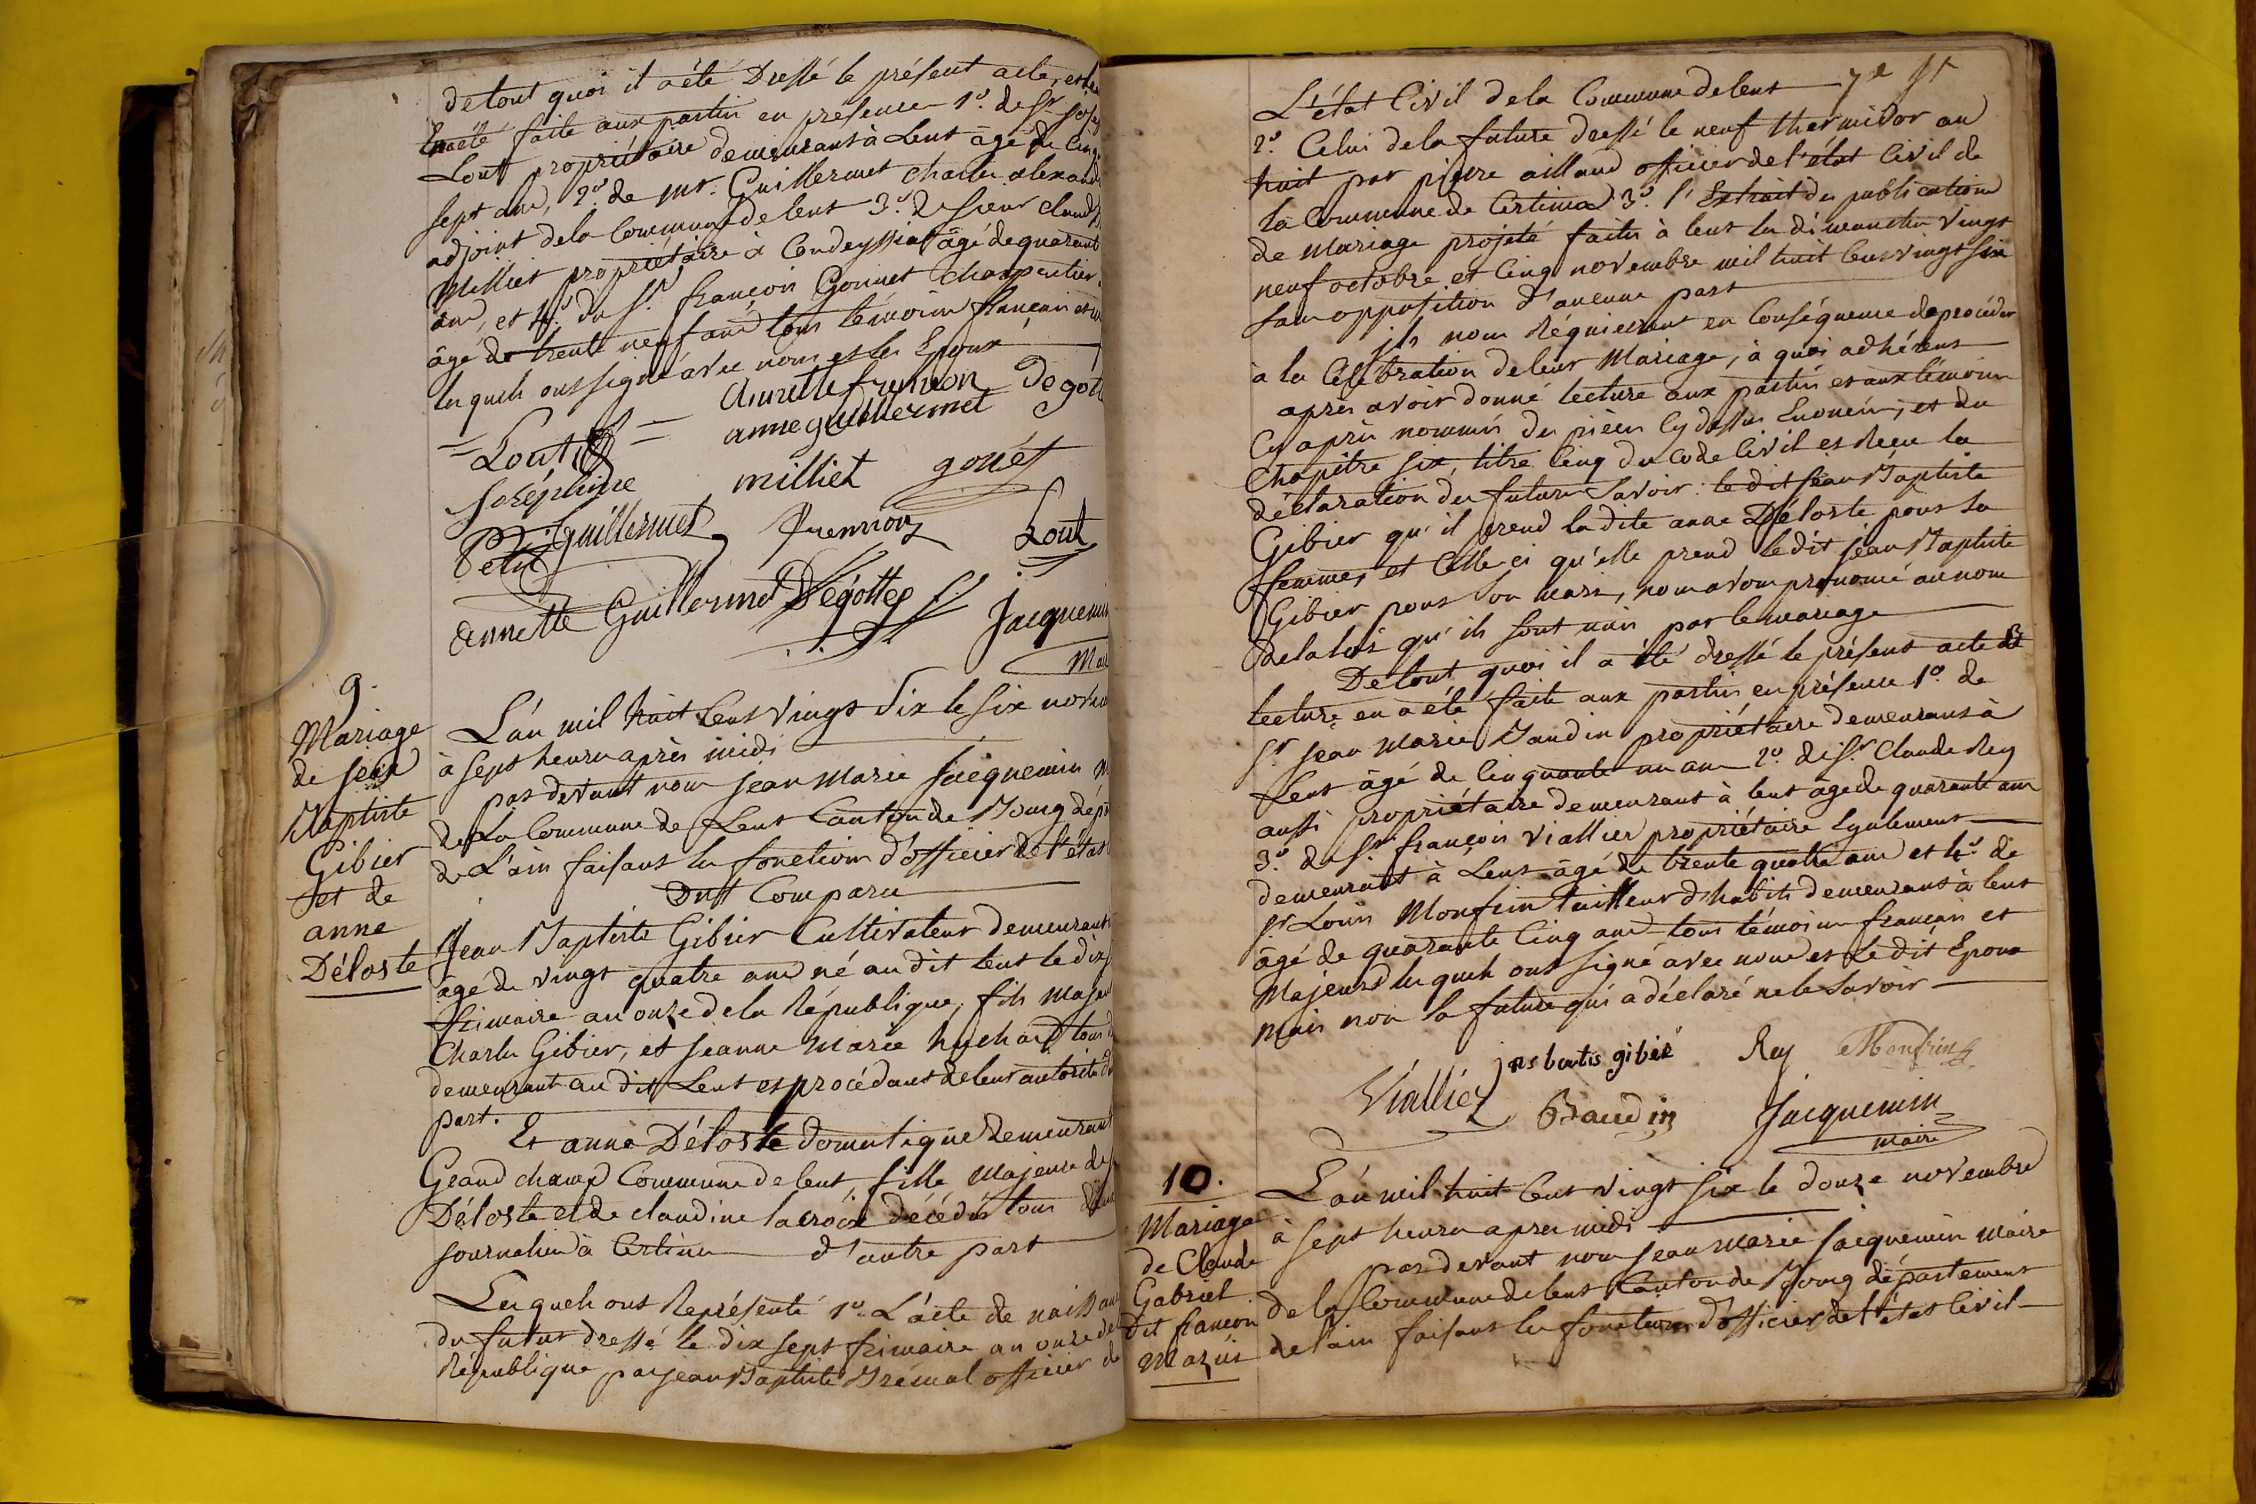 De tout quoi il a été Dressé le présent acte, et lec
En a été faite aux parties en présence 1º. de Sr josep
Lout propriétaire demeurant à Lent âgé de Cinq
sept ans, 2º. de Mr. Guillermet Charles alexand
adjoint de la Commune de lent 3º. de sieur claud
Milliet propriétaire à Condeyssiat âgé de quarant
ans, et 4º. du Sr. françois Gonnet Charpentier
âgé de trente neuf ans tous témoins français et
lesquels ont signé avec nous et les Epoux
= Lout = annette frennon Dégott
anne guillermet
joséphine milliet gonet
Petit guillermet frennon Lout
annette Guillermet Dégottes Jacquemin
Mai
9.
Mariage
de jean
Baptiste
Gibier
et de
anne
Déloste
L'an mil huit Cent vingt Six le six novem
à sept heures après midi
par devant nous jean Marie jacquemin M
de La Commune de Lent Canton de Bourg dép
de L'ain faisant les fonctions d'officier de l'état
Ont Comparu
Jean Baptiste Gibier Cultivateur demeurant
âgé de vingt quatre ans né au dit lent le dix
frimaire an onze de la République, fils majeur
Charles Gibier, et jeanne Marie huchard tous
demeurant au dit Lent et procédant de leur autorité d
part.
Et anne Déloste domestique demeurant
Grand champ Commune de lent fille Majeure de
Déloste et de claudine lacroix décédés tous deux
journaliers à Certines d'autre part
Lesquels ont Représenté 1º. L'acte de naissan
du futur dressé le dix sept frimaire an onze de
République par jean Baptiste Brémal officier de
L'état Civil de la Commune de lent 7e
2º. Celui de la future dressé le neuf thermidor an
huit par pierre aillaud officier de l'état Civil de
la Commune de Certines 3º. l'Extrait des publications
de Mariage projeté faites à lent les dimanches vingt
neuf octobre et Cinq novembre mil huit Cent vingt six
sans opposition d'aucune part
jls nous Réquierent en Conséquence de procéder
à la Célébration de leur Mariage, à quoi adhérant
après avoir donné lecture aux parties et aux témoins
Cy après nommés des pièces Cy dessus Enoncés, et du
Chapitre six, titre Cinq du Code Civil et Recu la
déclaration des futurs Savoir: le dit jean Baptiste
Gibier qu'il prend la dite anne Déloste pour sa
femme, et Celle ci qu'elle prend le dit jean Baptiste
Gibier pour son mari, nous avons prononcé au nom
de la loi qu'ils sont unis par le mariage
De tout quoi il a été dressé le présent acte et
lecture en a été faite aux parties en présence 1º. de
Sr jean Marie Baudin propriétaire demeurant à
Lent âgé de Cinquante un ans 2º. de Sr. Claude Rey
aussi propriétaire demeurant à lent âgé de quarante ans
3º. de Sr. françois Viallier propriétaire Egalement
demeurant à Lent âgé de trente quatre ans et 4º. de
Sr Louis Monfrin tailleur d'habits demeurant à lent
âgé de quarante Cinq ans tous témoins français et
Majeurs lesquels ont signé avec nous et le dit Epoux
Mais non la future qui a déclaré ne le Savoir
batis gibié Rey Monfrin
Viallier Baudin Jacquemin
maire
10.
Mariage
de Claude
Gabriel
dit françois
Mazuir
L'an mil huit Cent vingt six le douze novembre
à sept heures apres midi
par devant nous jean Marie jacquemin Maire
de la Commune de lent Canton de Bourg département
de l'ain faisant les fonctions d'officier de l'état Civil